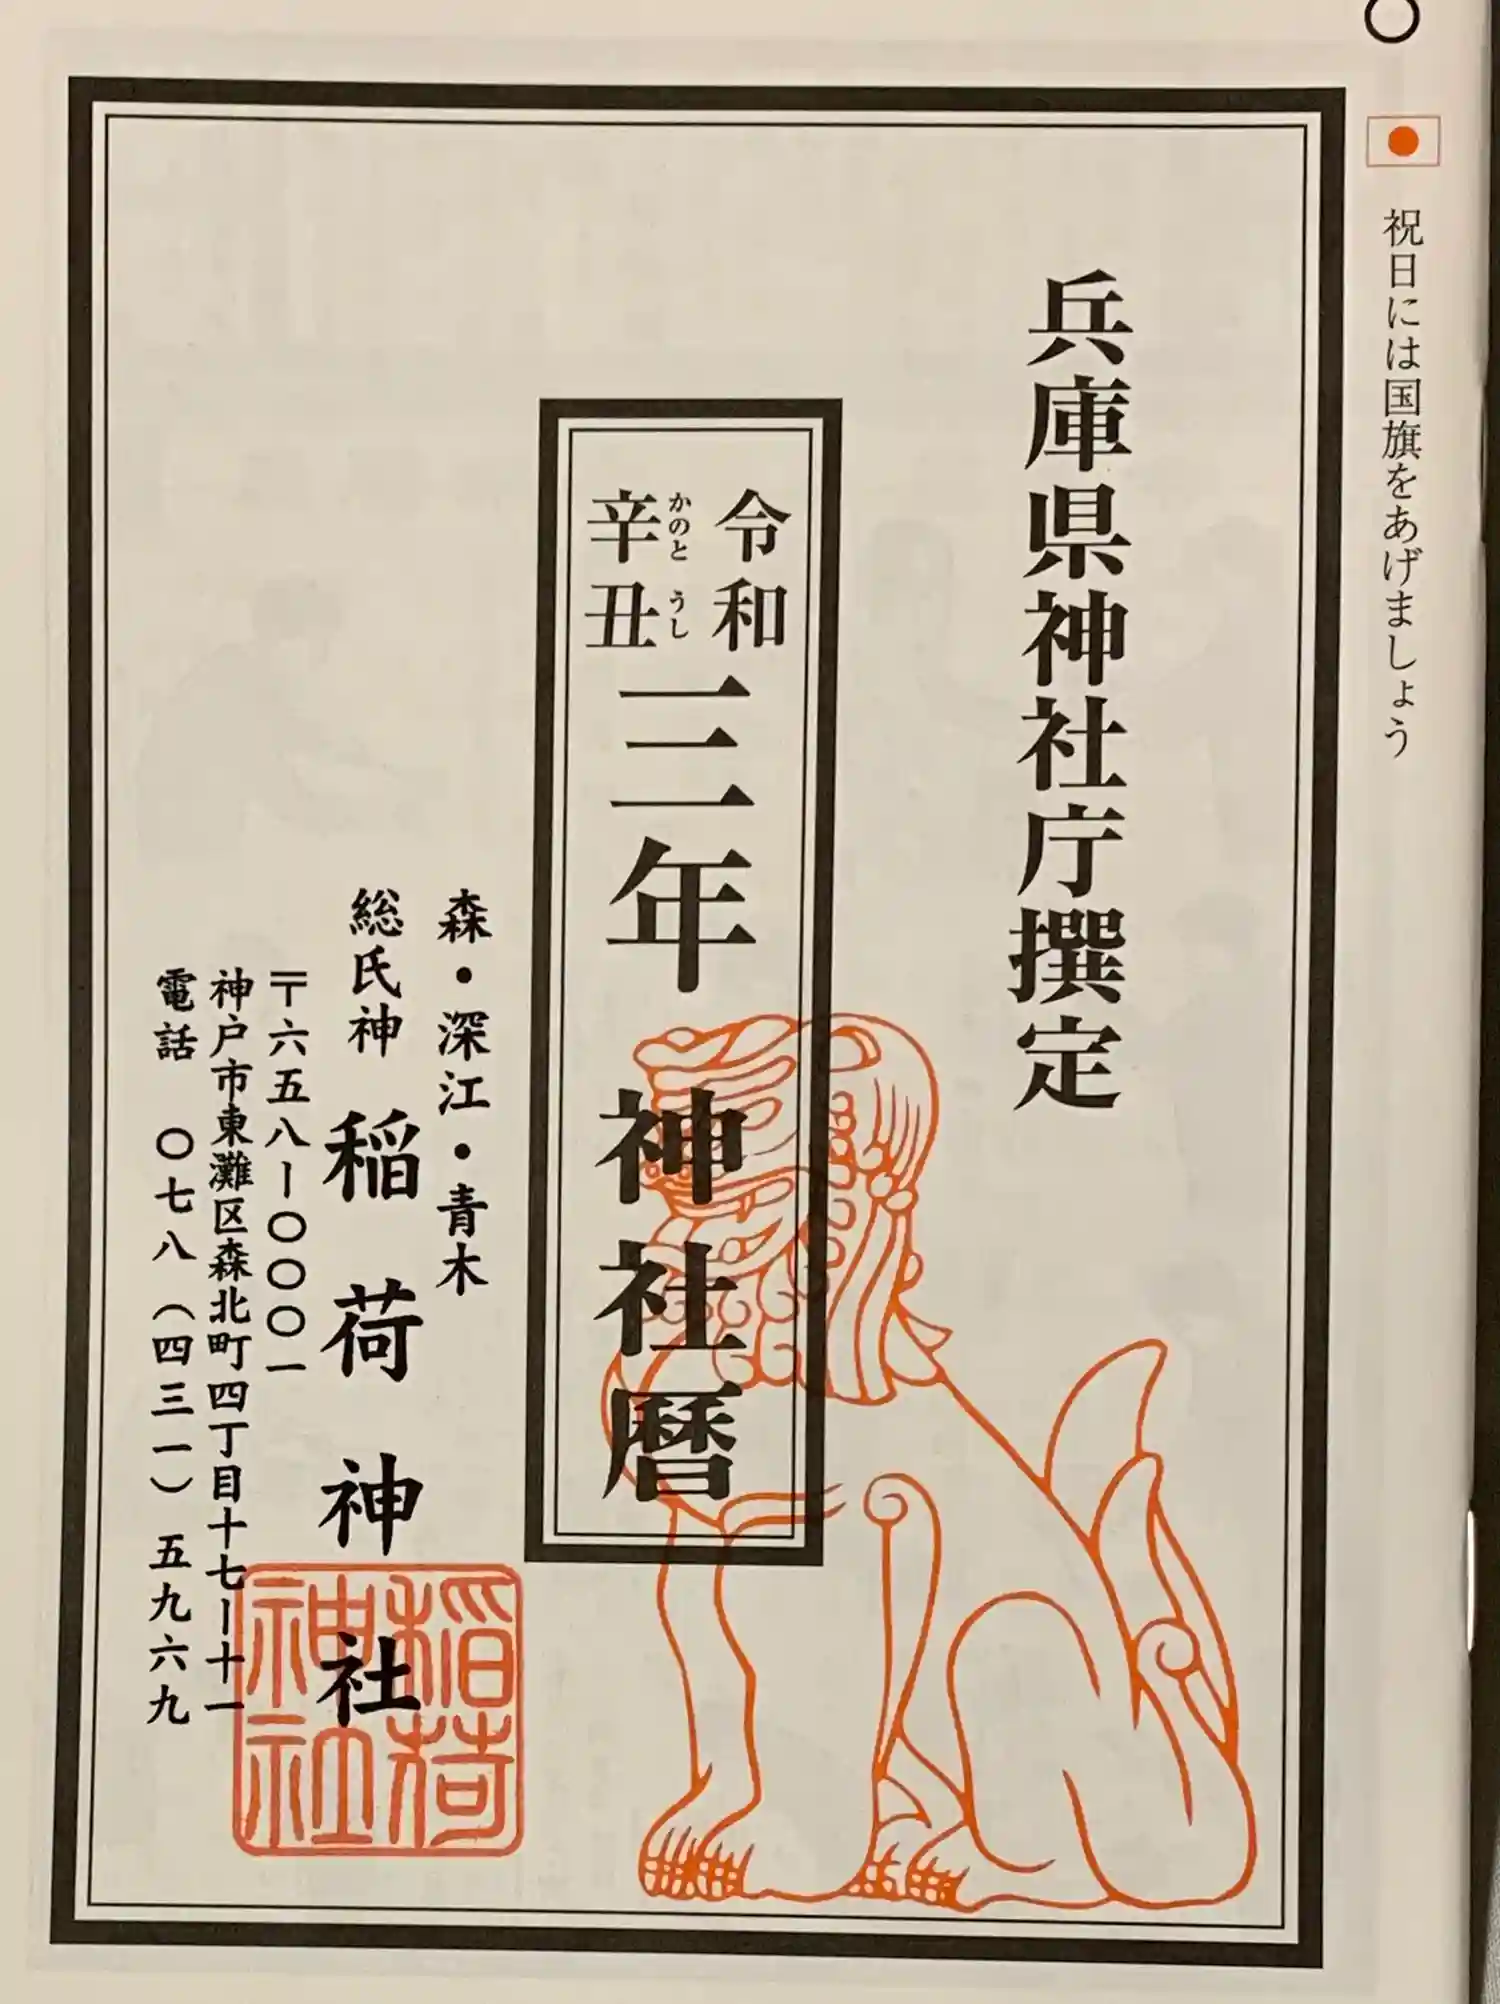 祝日には国旗をあげましょう
兵庫県神社庁撰定
令和
辛丑
かのと うし
三年 神社暦
森・深江・青木
総氏神 稲荷神社
〒六五八ー〇〇〇一
神戸市東灘区森北町四丁目十七ー十一
電話 〇七八(四三一)五九六九
稲荷
神社